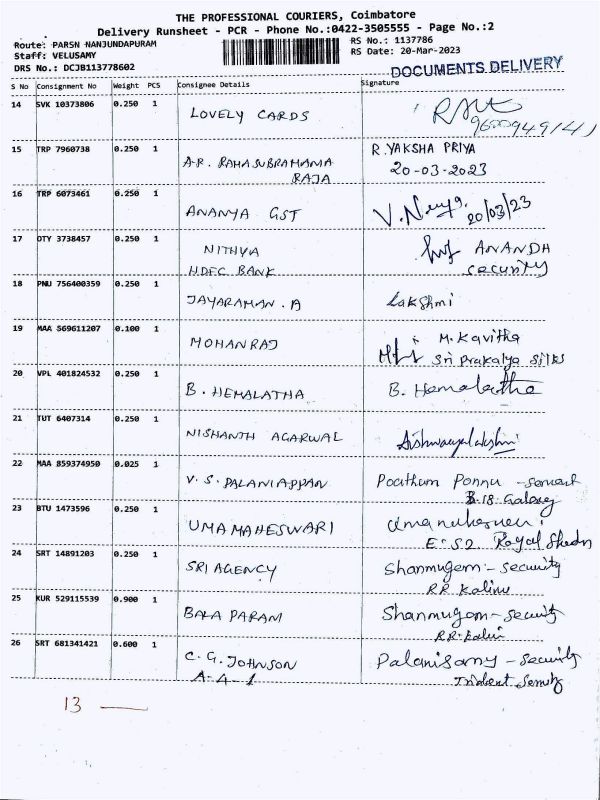 THE PROFESSIONAL COURIERS, Coimbatore
Delivery Runsheet - PCR - Phone No.:0422-3505555 - Page No.:2
Route: PARSN NANJUNDAPURAM
Staff: VELUSAMY
DRS No.: DCJB113778602
RS No.: 1137786
RS Date: 20-Mar-2023
DOCUMENTS DELIVERY
S No Consignment No Weight PCS Consignee Details Signature
14 SVK 10373806 0.250 1 LOVELY CARDS
15 TRP 7960738 0.250 1 A.R. RAMASUBRAMANIA R.YAKSHA PRIYA
RAJA 20-03-2023
16 TRP 6073461 0.250 1 ANANYA GST 20/03/23
17 OTY 3738457 0.250 1 NITHYA ANANDH
HDFC BANK security
18 PNU 756400359 0.250 1 JAYARAMAN.A Lakshmi
19 MAA 569611207 0.100 1 MOHANRAJ M. Kavitha
Sri Prakalya Silks
20 VPL 401824532 0.250 1 B. HEMALATHA B. Hemalatha
21 TUT 6407314 0.250 1 NISHANTH AGARWAL Aishwaryalakshmi
22 MAA 859374950 0.025 1 V.S. PALANIAPPAN Ponnu
B-18 Galaxy
23 BTU 1473596 0.250 1 UMA MAHESWARI
E-52 Royal
24 SRT 14891203 0.250 1 SRI AGENCY Shanmugam - security
R.R.
25 KUR 529115539 0.900 1 BALA PARAM Shanmugam - security
R.R.
26 SRT 681341421 0.600 1 C.G. JOHNSON Palanisamy - security
A-4-1 Trident
13